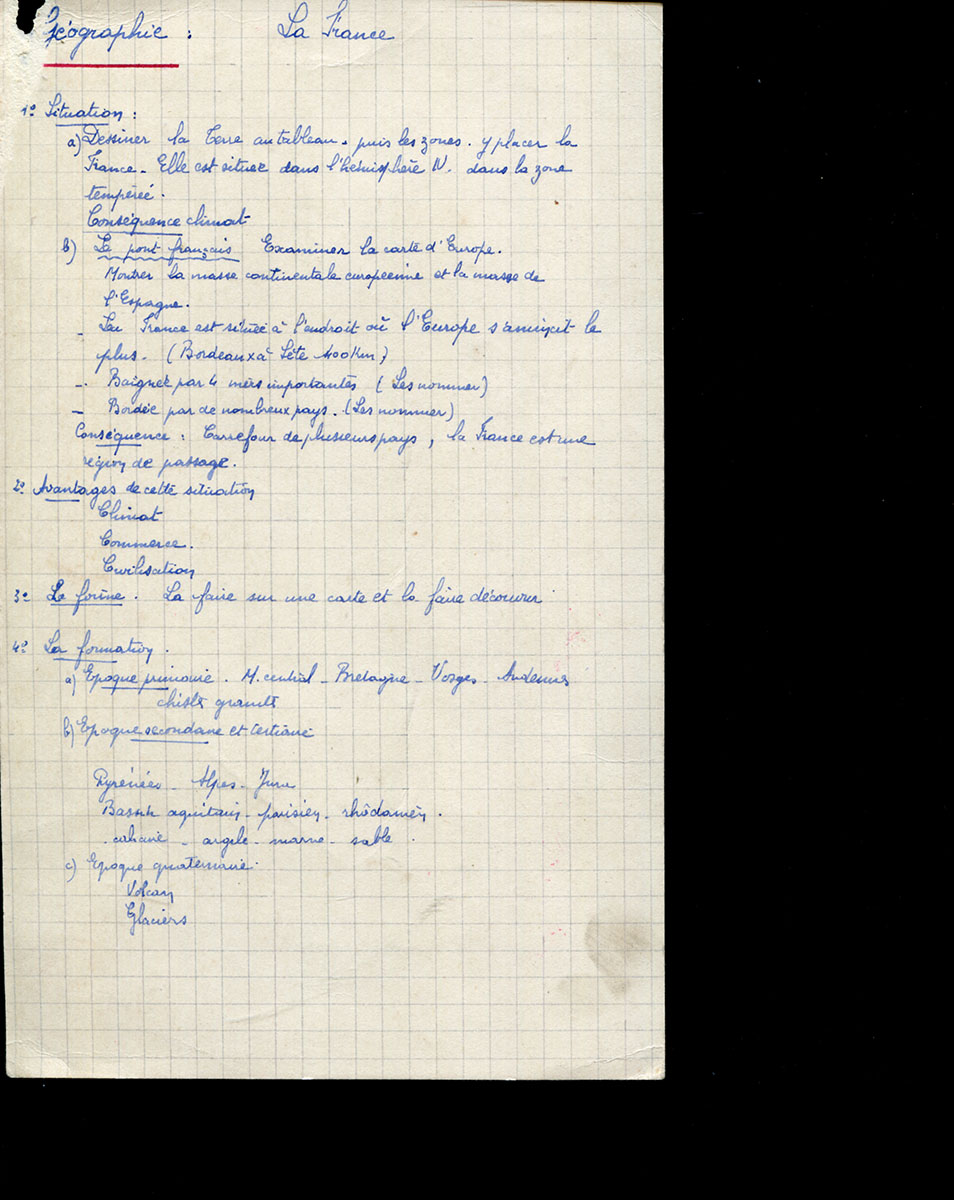 Géographie : La France
1º Situation :
a) Dessiner la Terre au tableau. puis les zones. y placer la
France. Elle est située dans l'hémisphère N. dans la zone
tempérée.
Conséquence climat
b) Le pont français Examiner la carte d'Europe.
Montrer la masse continentale européenne et la masse de
l'Espagne.
- La France est située à l'endroit où l'Europe s'amincit le
plus. (Bordeaux à Sète 400 km)
- Baignée par 4 mers importantes (Les nommer)
- Bordée par de nombreux pays. (Les nommer)
Conséquence : Carrefour de plusieurs pays, la France est une
région de passage.
2º Avantages de cette situation
Climat
Commerce.
Civilisation
3º La forme. La faire sur une carte et la faire découvrir
4º La formation.
a) Epoque primaire. M. central - Bretagne - Vosges - Ardennes
granits
b) Epoque secondaire et tertiaire
Pyrénées - Alpes - Jura
Bassin aquitain - parisien - rhodanien.
calcaire - argile - marne - sable.
c) Epoque quaternaire.
Volcan
Glaciers